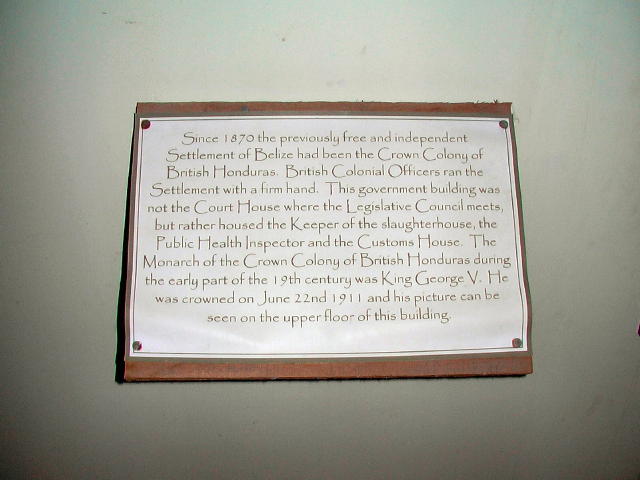 Since 1870 the previously free and independent
Settlement of Belize had been the Crown Colony of
British Honduras. British Colonial Officers ran the
Settlement with a firm hand. This government building was
not the Court House where the Legislative Council meets,
but rather housed the Keeper of the slaughterhouse, the
Public Health Inspector and the Customs House. The
Monarch of the Crown Colony of British Honduras during
the early part of the 19th century was King George V. He
was crowned on June 22nd 1911 and his picture can be
seen on the upper floor of this building.